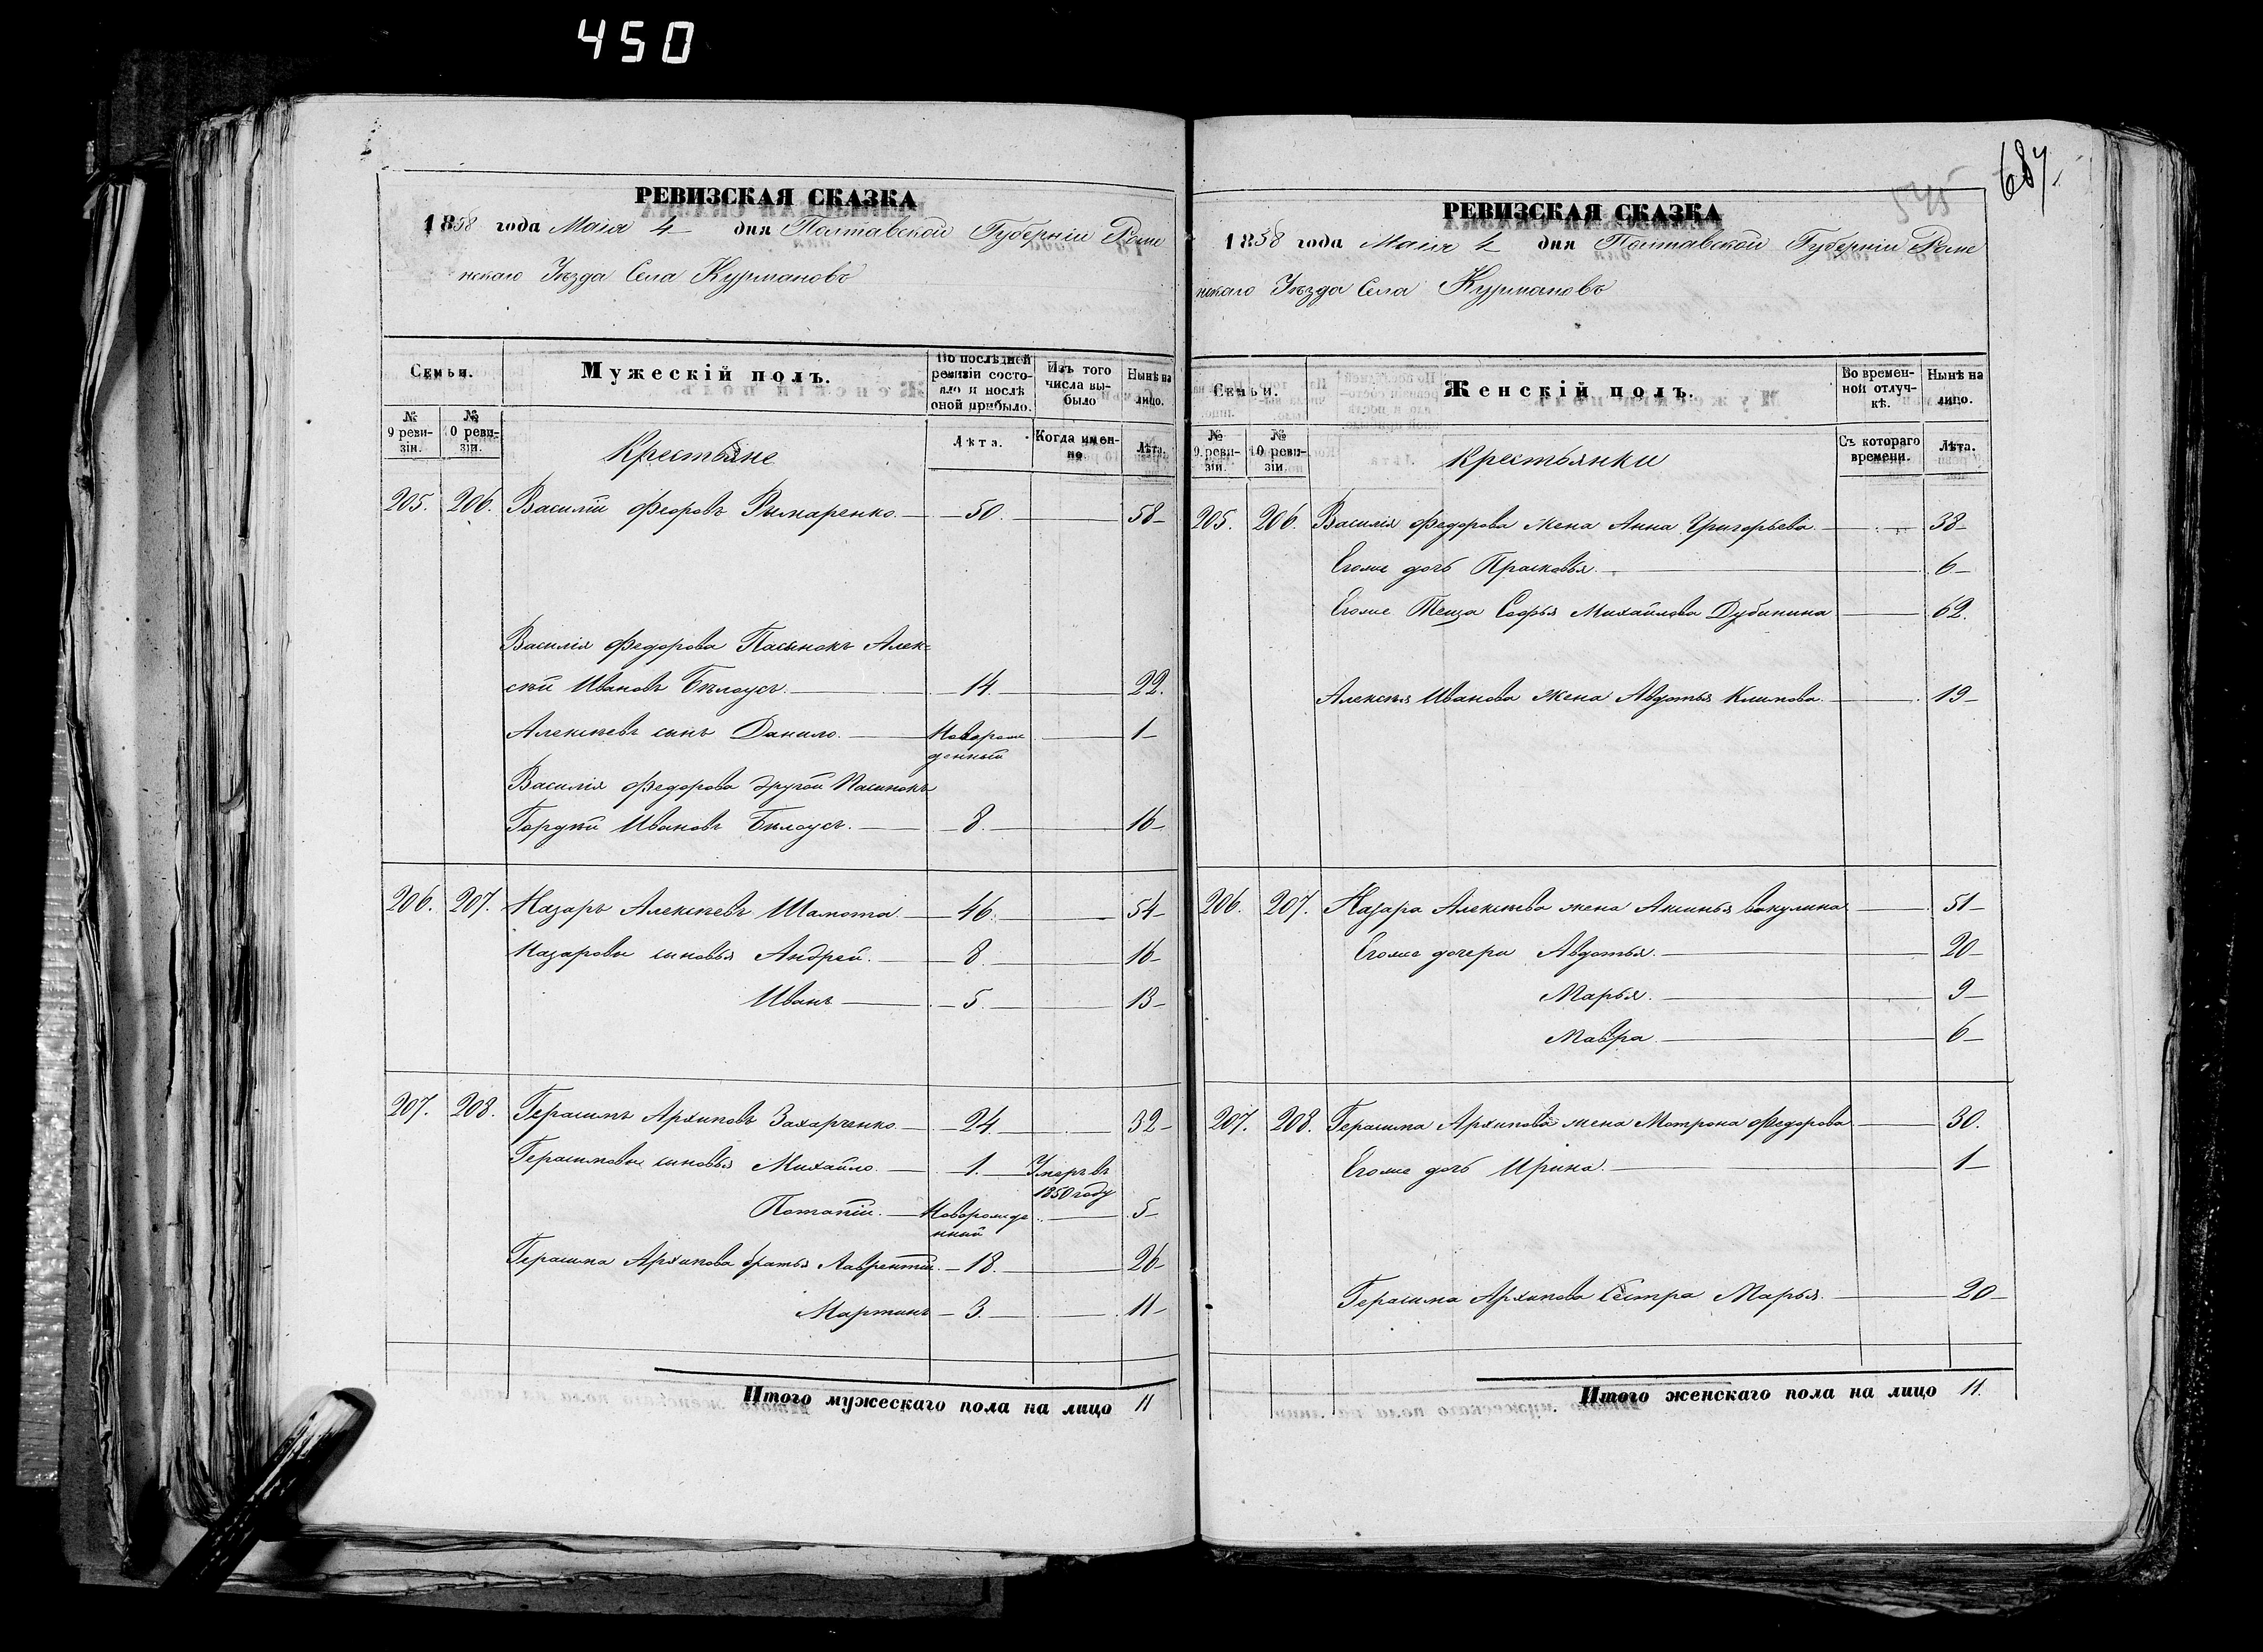 450
РЕВИЗСКАЯ СКАЗКА
1858 года Маія 4 дня Полтавской Губерніи Роме
нскаго Уѣзда Села Курмановъ
Семьи.
Мужескій полъ.
По послѣдней ревизіи состояло и послѣ оной прибыло.
Изъ того числа выбыло
Нынѣ на лицо.
№ 9 ревизіи.
№ 10 ревизіи.
Крестьяне
Лѣта.
Когда именно
Лѣта.
205. 206. Василій Федоровъ Рымаренко. 50. 58
Василія Федорова Пасынокъ Алек-
сѣй Ивановъ Бѣлоусъ. 14. 22.
Алексѣевъ сынъ Данило. Новорож 1
денный
Василія Федорова другой Пасынокъ
Гордѣй Ивановъ Бѣлоусъ. 8. 16
206. 207. Назаръ Алексѣевъ Шамота 46. 54
Назаровы сыновья Андрей. 8. 16
Иванъ 5. 13
207. 208. Герасимъ Архиповъ Захарченко 24. 32
Герасимовы сыновья Михайло. 1. Умеръ въ
1850 году
Потапій. Новорожде 5
нный
Герасима Архипова братья Лаврентій. 18. 26
Мартинъ 3. 11
Итого мужескаго пола на лицо 11
687.
545
РЕВИЗСКАЯ СКАЗКА
1858 года Маія 4 дня Полтавской Губерніи Роме
нскаго Уѣзда Села Курмановъ
Семьи.
Женскій полъ.
Во временной отлучкѣ.
Нынѣ на лицо.
№ 9 ревизіи.
№ 10 ревизіи.
Крестьянки
Съ котораго времени.
Лѣта.
205. 206. Василія Федорова жена Анна Григорьева. 38
Егоже дочь Прасковья. 6
Егоже Теща Софья Михайлова Дубинина 62.
Алексѣя Иванова жена Авдотья Климова. 19
206. 207. Назара Алексѣева жена Аксинья Вакулина 51
Егоже дочери Авдотья. 20
Марья. 9
Мавра. 6
207. 208. Герасима Архипова жена Мотрона Федорова 30.
Егоже дочь Ирина. 1
Герасима Архипова Сестра Марья. 20
Итого женскаго пола на лицо 11.